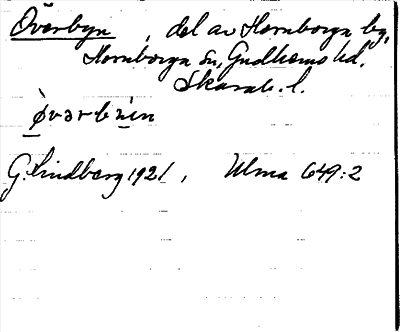 Överbyn, del av Hornborga by,
Hornborga sn, Gudhems hd.
Skarab. l.
G. Lindberg 1921, Ulma 649:2